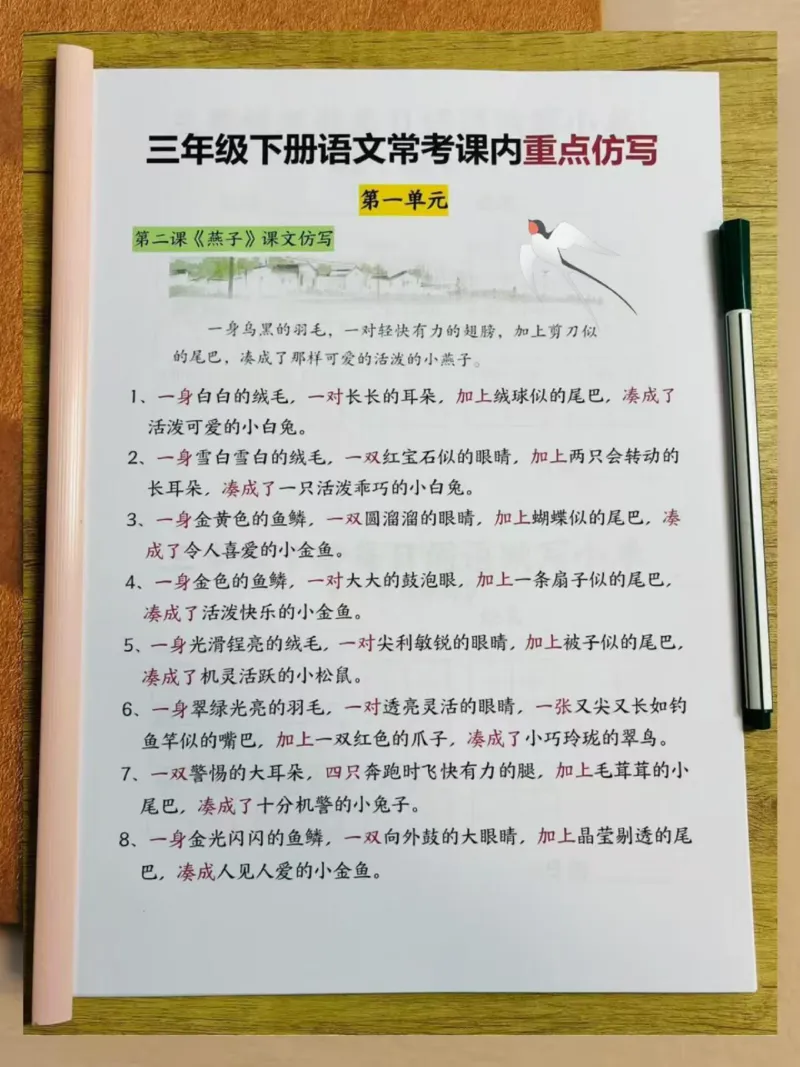 三年级下册语文常考课内重点仿写
第一单元
第二课《燕子》课文仿写
一身乌黑的羽毛，一对轻快有力的翅膀，加上剪刀似
的尾巴，凑成了那样可爱的活泼的小燕子。
1、一身白白的绒毛，一对长长的耳朵，加上绒球似的尾巴，凑成了
活泼可爱的小白兔。
2、一身雪白雪白的绒毛，一双红宝石似的眼睛，加上两只会转动的
长耳朵，凑成了一只活泼乖巧的小白兔。
3、一身金黄色的鱼鳞，一双圆溜溜的眼睛，加上蝴蝶似的尾巴，凑
成了令人喜爱的小金鱼。
4、一身金色的鱼鳞，一对大大的鼓泡眼，加上一条扇子似的尾巴，
凑成了活泼快乐的小金鱼。
5、一身光滑锃亮的绒毛，一对尖利敏锐的眼睛，加上被子似的尾巴，
凑成了机灵活跃的小松鼠。
6、一身翠绿光亮的羽毛，一对透亮灵活的眼睛，一张又尖又长如钓
鱼竿似的嘴巴，加上一双红色的爪子，凑成了小巧玲珑的翠鸟。
7、一双警惕的大耳朵，四只奔跑时飞快有力的腿，加上毛茸茸的小
尾巴，凑成了十分机警的小兔子。
8、一身金光闪闪的鱼鳞，一双向外鼓的大眼睛，加上晶莹剔透的尾
巴，凑成人见人爱的小金鱼。